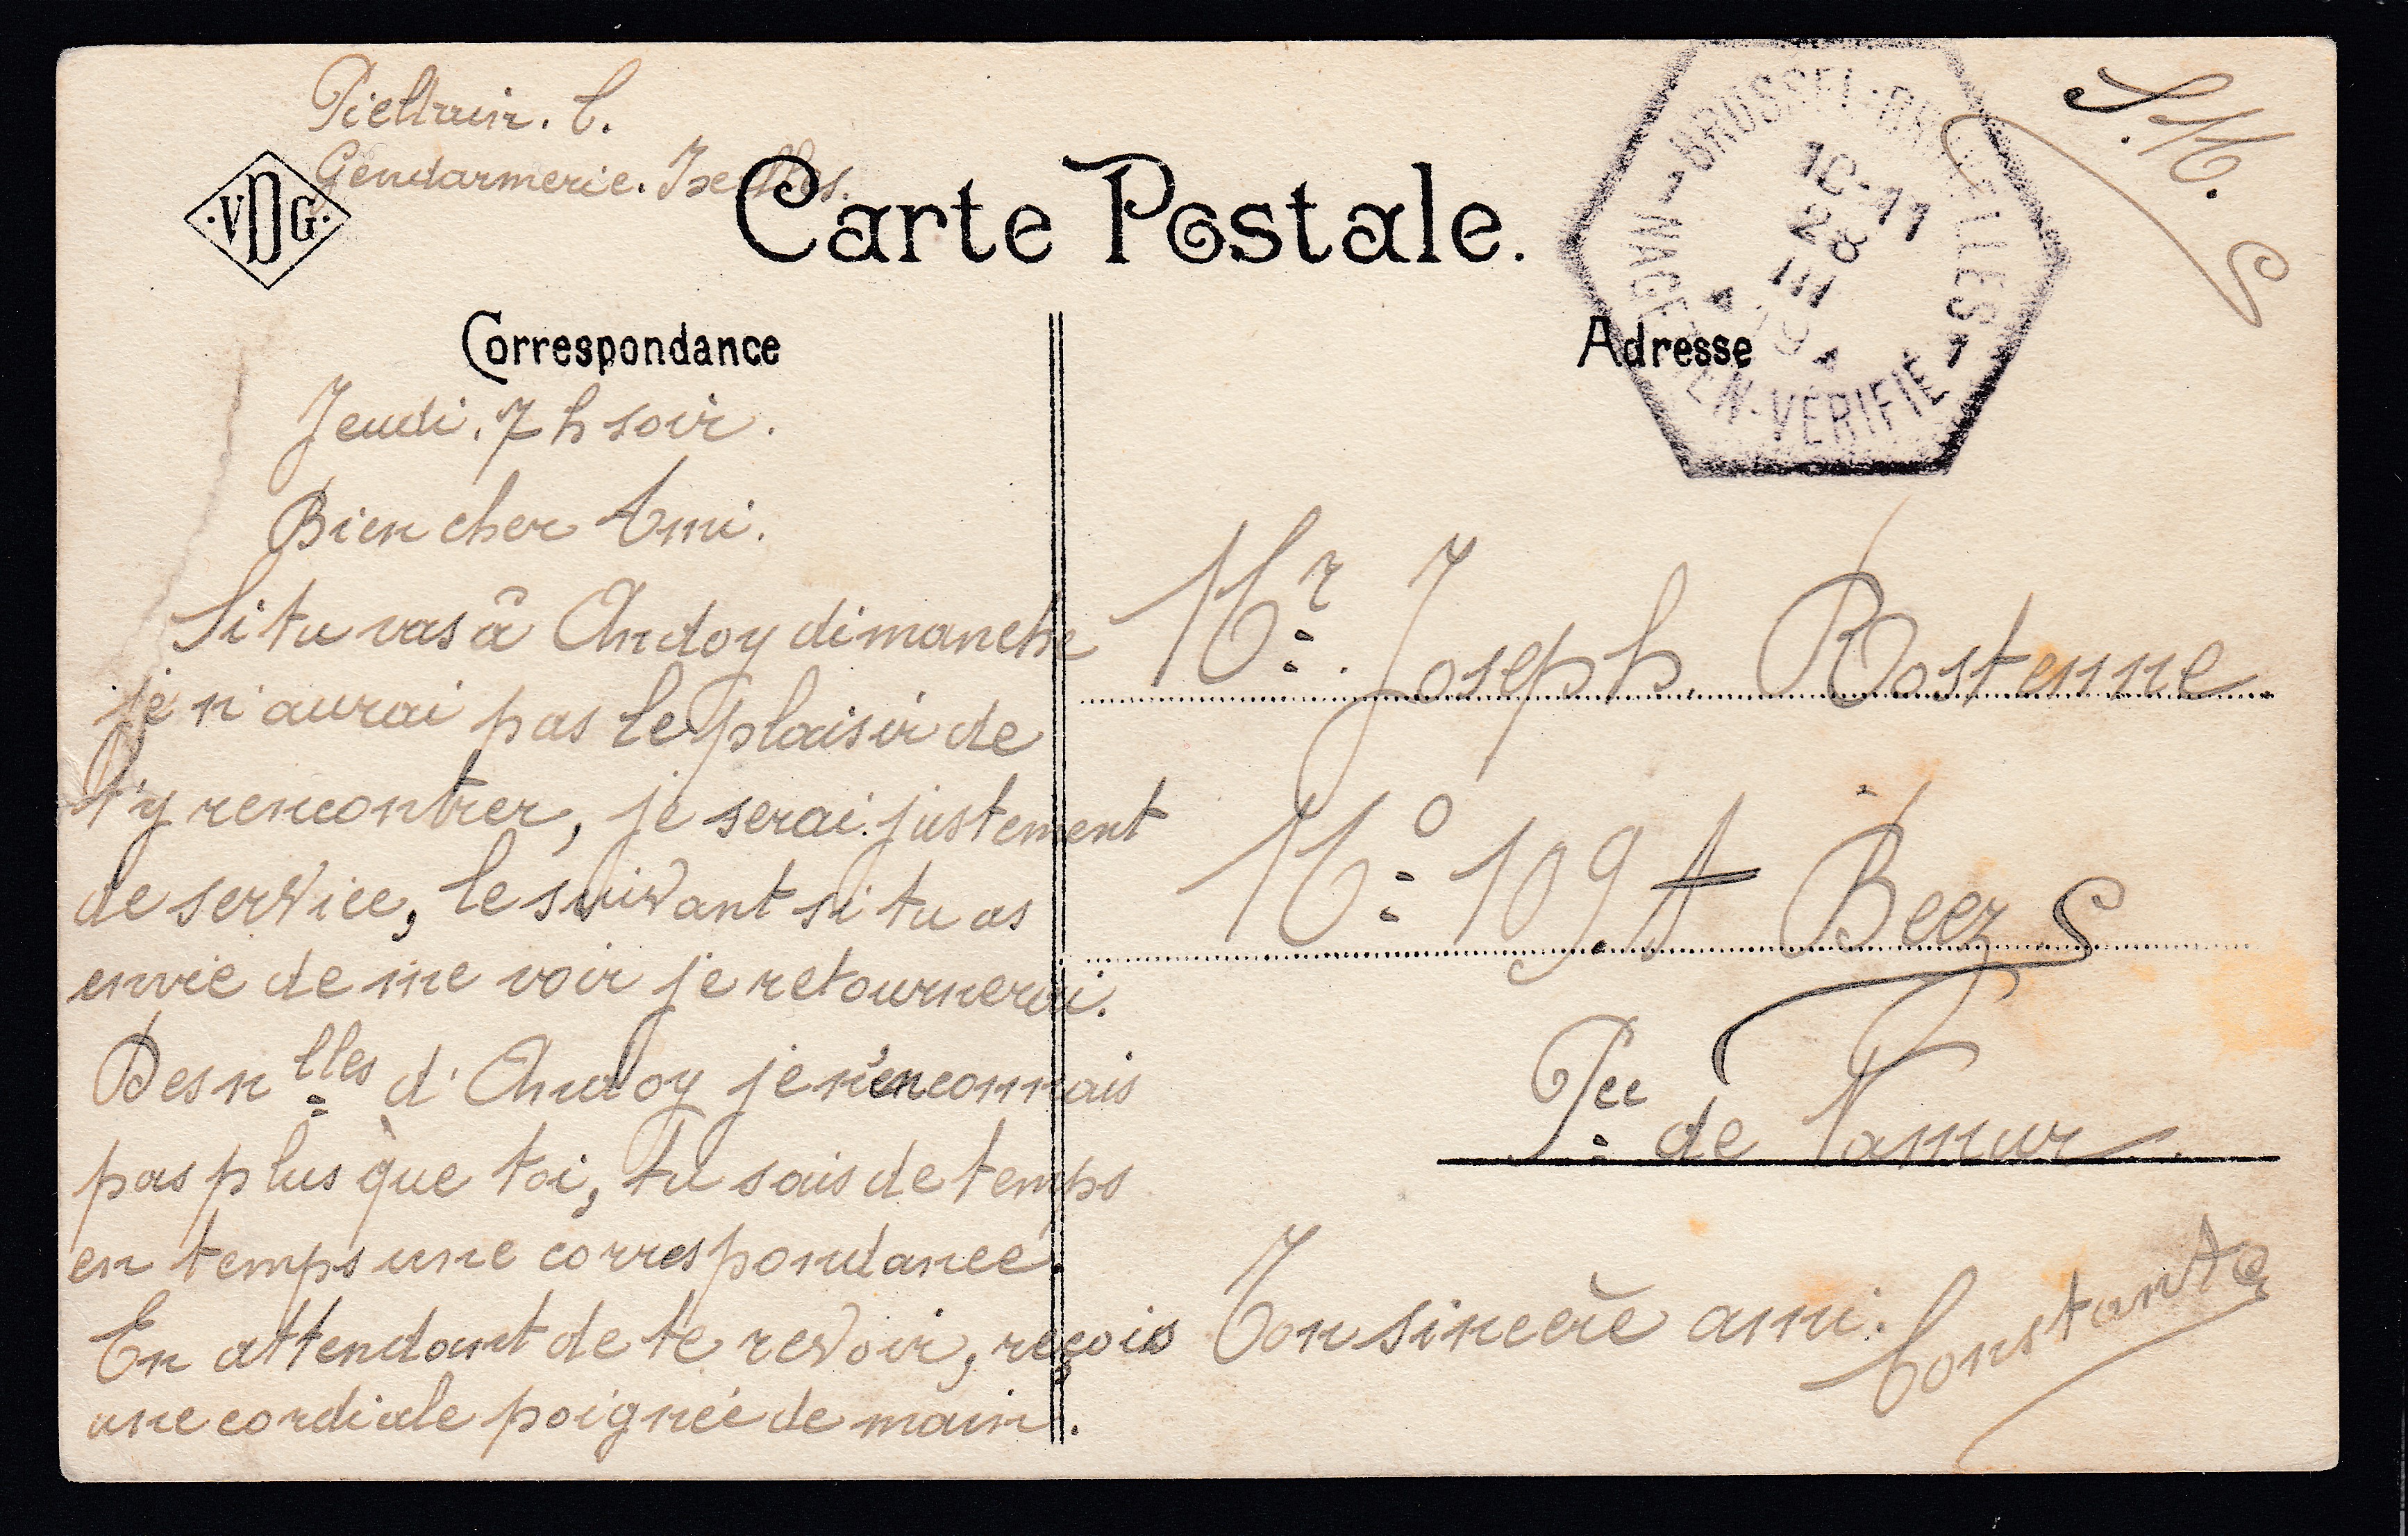 Pieltain. C.
Gendarmerie. Ixelles.
S.M.
VDG
Carte Postale.
1 BRUSSEL-BRUXELLES 1
10-11
28
III
19
NAGEZIEN-VÉRIFIÉ
Correspondance
Adresse
Jeudi. 7 h soir.
Bien cher Ami.
Si tu vas à Andoy dimanche
je n'aurai pas le plaisir de
t'y rencontrer, je serai justement
de service, le suivant si tu as
envie de me voir je retournerai.
Des nlles d'Andoy je n'en connais
pas plus que toi, tu sais de temps
en temps une correspondance.
En attendant de te revoir, reçois
une cordiale poignée de main.
Mr. Joseph Rostenne
No 109 A Beez
Pce de Namur.
Ton sincère ami.
Constant